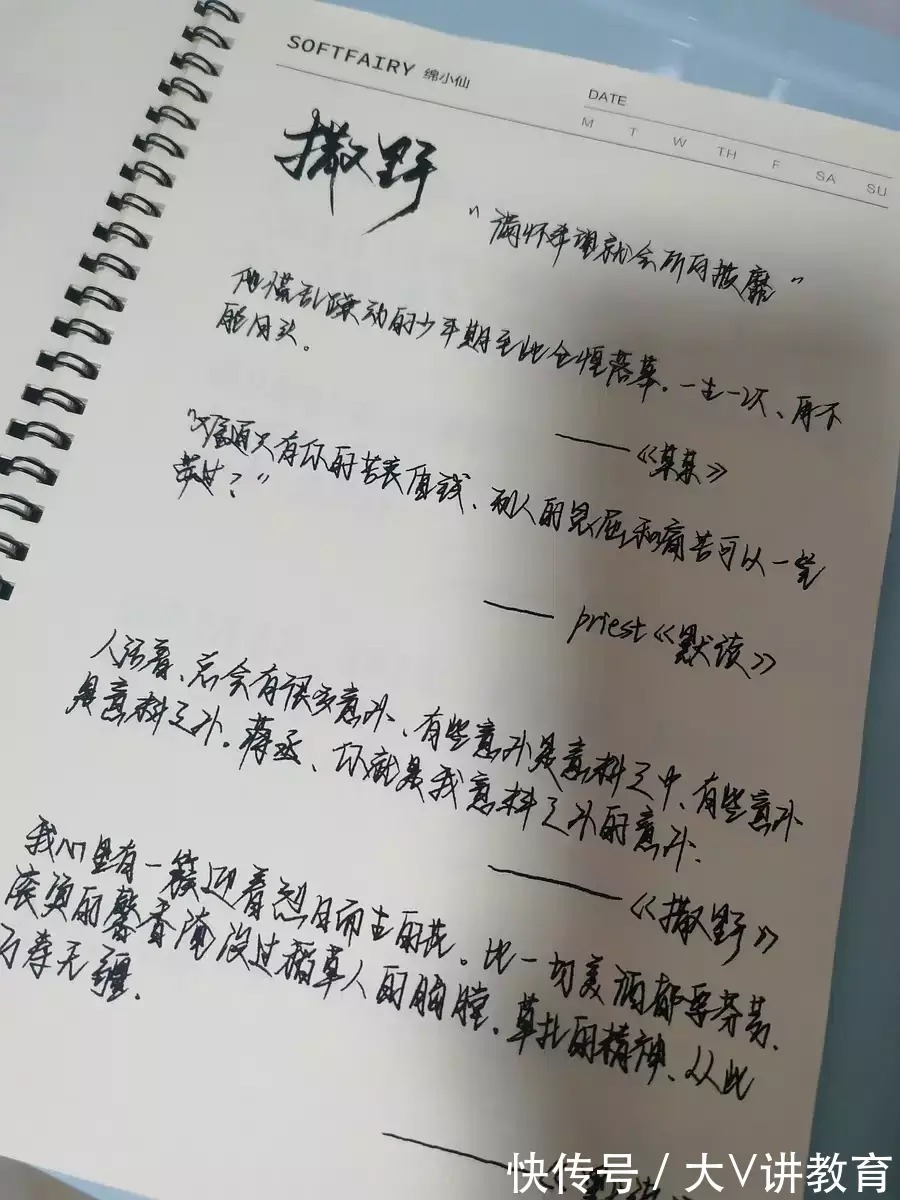 SOFTFAIRY 绵小仙
DATE
M T W TH F SA SU
撒野
"满怀希望就会所向披靡"
他慌乱躁动的少年期至此仓惶落幕。一生一次、再不
能回头。
——《某某》
"难道只有你的苦衷值钱、别人的冤屈和痛苦可以一笔
带过?"
—— priest《默读》
人活着、总会有很多意外、有些意外是意料之中、有些意外
是意料之外。蒋丞、你就是我意料之外的意外.
——《撒野》
我心里有一簇迎着烈日而生的花。比一切美酒都要芬芳.
滚烫的馨香淹没过稻草人的胸膛.草扎的精神、从此
万寿无疆.
快传号 / 大V讲教育